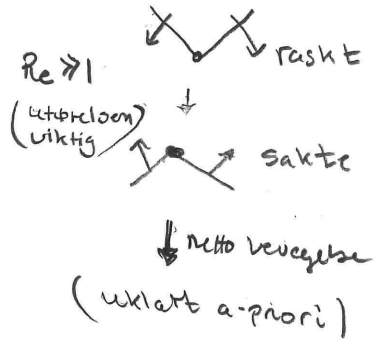 raskt
Re ≫ 1
(utførelsen
viktig)
sakte
netto bevegelse
(uklart a-priori)